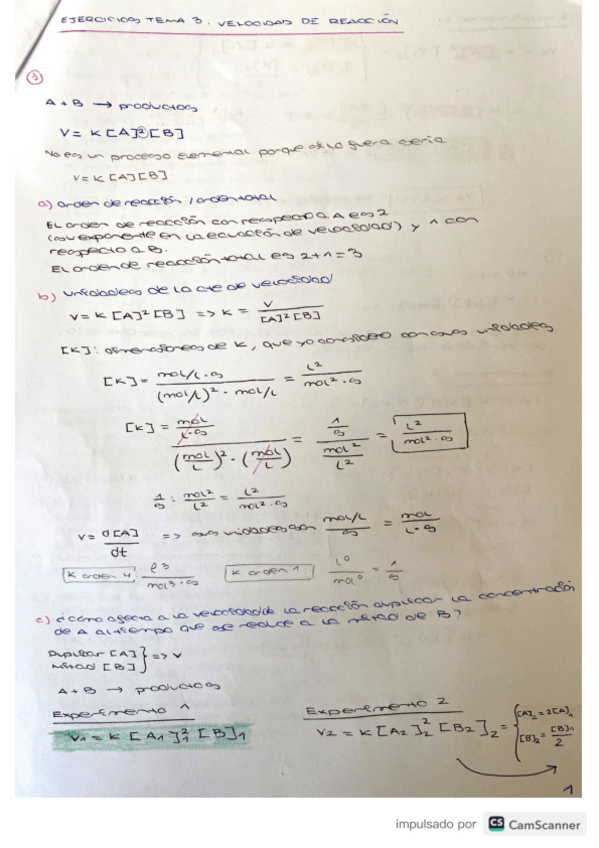 EJERCICIOS TEMA 3. VELOCIDAD DE REACCIÓN
3
A + B → productos
V = K [A]² [B]
No es un proceso elemental porque si lo fuera sería
V = K [A] [B]
a) orden de reacción / orden total
El orden de reacción con respecto a A es 2
(su exponente en la ecuación de velocidad) y 1 con
respecto a B.
El orden de reacción total es 2+1=3
b) unidades de la cte de velocidad
V = K [A]² [B] => K = V / [A]² [B]
[K]: dimensiones de K, que yo considero como sus unidades
[K] = mol/L·s / (mol/L)² · mol/L = L² / mol²·s
[K] = mol/L·s / (mol/L)² · (mol/L) = 1/s / mol²/L² = L² / mol²·s
1/s : mol²/L² = L² / mol²·s
V = d[A]/dt => sus unidades son mol/L / s = mol / L·s
K orden 4: l³ / mol³·s K orden 1 L⁰ / mol⁰ = 1/s
c) ¿Cómo afecta a la velocidad de la reacción duplicar la concentración
de A al tiempo que se reduce a la mitad de B?
Duplicar [A]
Mitad [B] } => V
A + B → productos
Experimento 1 Experimento 2
V1 = K [A1]²1 [B]1 V2 = K [A2]²2 [B2]2 = { [A]2 = 2[A]1
[B]2 = [B]1 / 2
1
impulsado por CS CamScanner